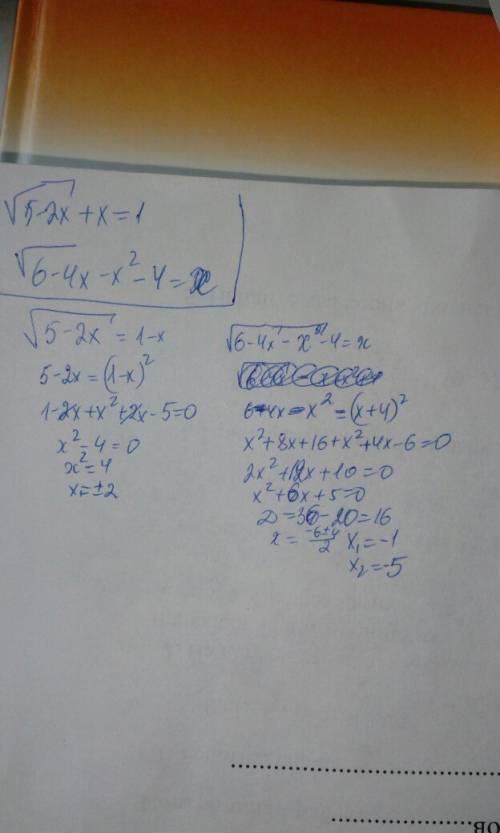 √5-2x + x = 1
√6-4x - x² - 4 = x
√5-2x = 1-x
5-2x = (1-x)²
1-2x+x²+2x-5=0
x²-4=0
x²=4
x=±2
√6-4x-x² -4=x
6-4x-x²=(x+4)²
x²+8x+16+x²+4x-6=0
2x²+12x+10=0
x²+6x+5=0
D=36-20=16
x = -6±4/2 x₁=-1
x₂=-5
ов